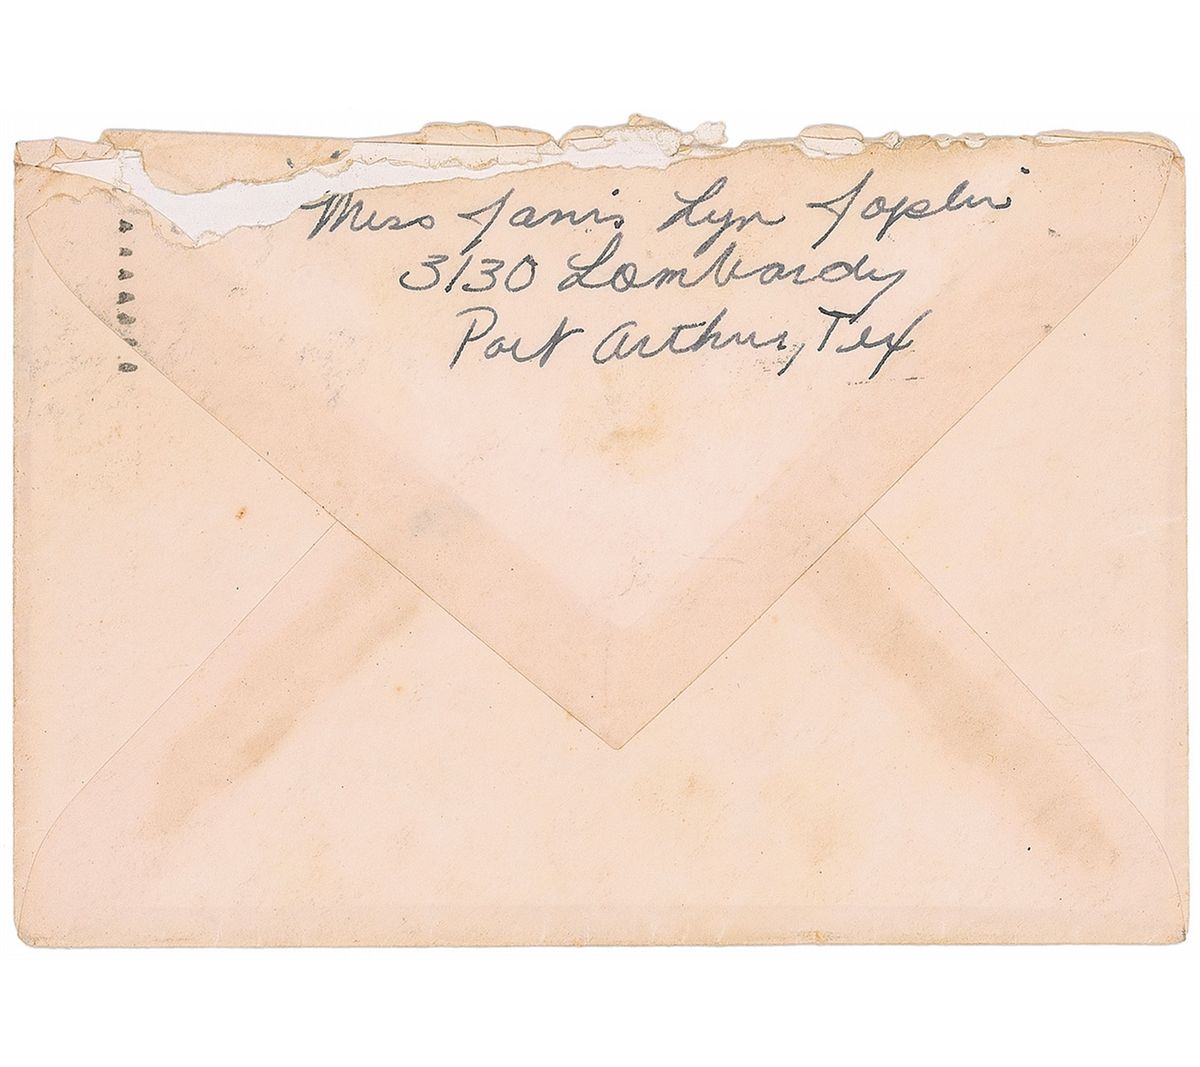 Miss Janis Lyn Joplin
3130 Lombardy
Port Arthur, Tex